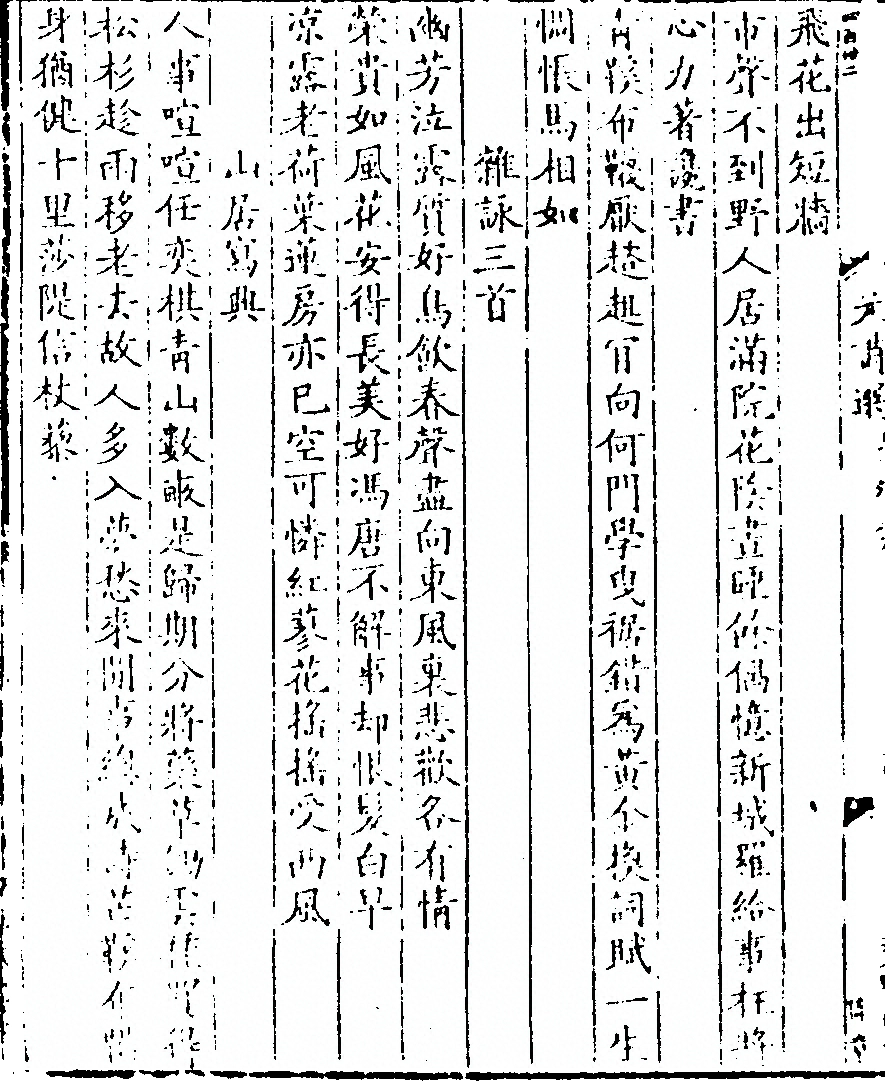 飛花出短牆
市聲不到野人居滿院花陰晝睡餘偶憶新城羅給事枉將
心力著讒書
青鞋布襪厭趑趄肯向何門學曳裾錯為黃金換詞賦一生
惆悵馬相如
雜詠三首
幽芳泣露質好鳥飲春聲盡向東風裏悲歡各有情
榮貴如風花安得長美好馮唐不解事却恨髮白早
凉露老荷葉蓮房亦已空可憐紅蓼花搖搖受西風
山居寫興
人事喧喧任奕棋青山數畝是歸期分將藥草
松杉趁雨移老去故人多入夢愁來閒事總成詩芒鞋
身猶健十里莎隄信杖藜